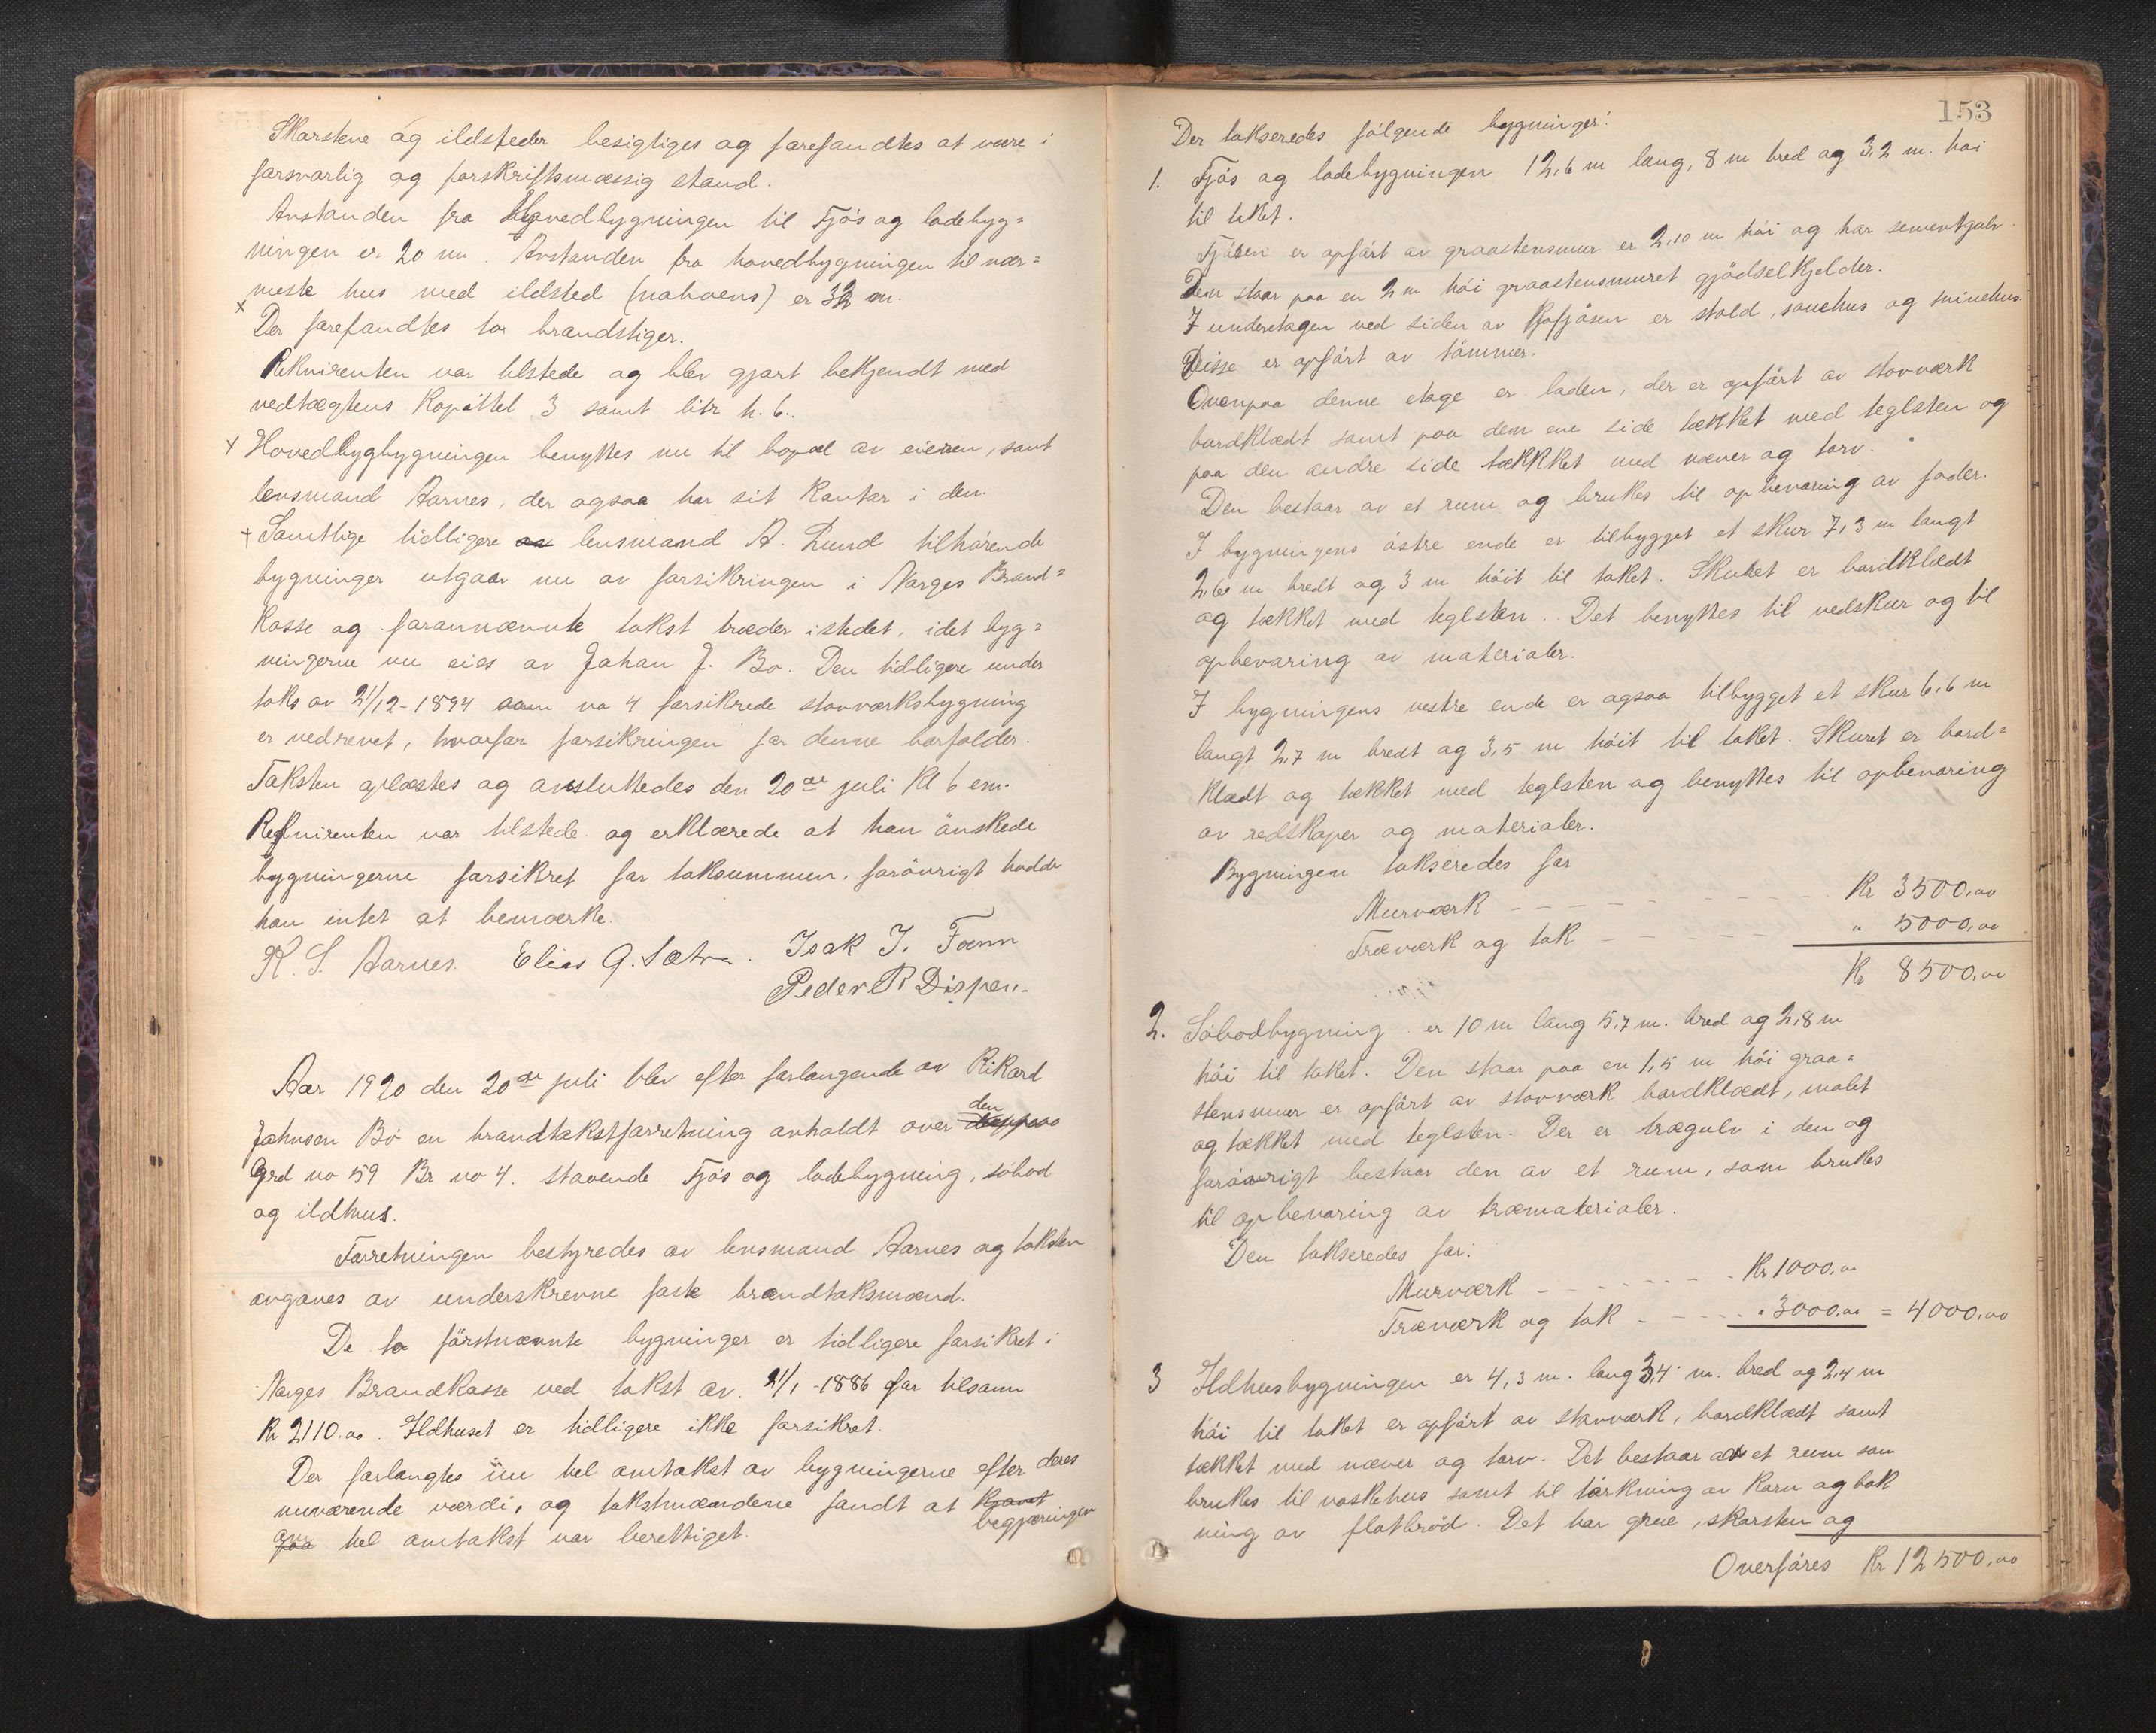 Skarstene og ildsteder besigtiges og forefandtes at være i
forsvarlig og forskriftsmæssig stand.
Avstanden fra Hovedbygningen til Fjøs og ladebyg=
ningen er 20 m. Avstanden fra hovedbygningen til nær=
meste hus med ildsted (naboens) er 32 m.
x Der forefandtes to brandstiger.
Rekvirenten var tilstede og blev gjort bekjendt med
vedtægtens Kapittel 3 samt litr h. 6..
x Hovedbygbygningen benyttes nu til bopæl av eieren, samt
lensmand Aarnes, der ogsaa har sit Kontor i den.
x Samtlige tidligere lensmand A. Lund tilhørende
bygninger utgaar nu av forsikringen i Norges Brand=
kasse og forannævnte takst træder istedet, idet byg=
ningerne nu eies av Johan J. Bø. Den tidligere under
taks av 21/12-1894 som no 4 forsikrede stavværksbygning
er nedrevet, hvorfor forsikringen for denne borfalder.
Taksten oplæstes og avsluttedes den 20de juli Kl 6 em.
Rekvirenten var tilstede og erklærede at han ønskede
bygningerne forsikret for taksummen, forøvrigt hadde
han intet at bemærke.
K. S. Aarnes. Elias G. Sætra. Isak J. Fonn
Peder R Dispen.
Aar 1920 den 20de juli blev efter forlangende av Rikard
Johnsen Bø en brandtakstforretning avholdt over den
Grd no 59 Br no 4. staaende Fjøs og ladebygning, søbod
og ildhus.
Forretningen bestyredes av lensmand Aarnes og taksten
avgaves av underskrevne faste brandtaksmænd.
De to førstnævnte bygninger er tidligere forsikret i
Norges Brandkasse ved takst av. 21/1-1886 for tilsamn
Kr 2110.00. Ildhuset er tidligere ikke forsikret.
Der forlangtes nu hel omtakst av bygningerne efter deres
nuværende værdi, og takstmændene fandt at Kravet begjæringen
om paa hel omtakst var berettiget.
153
Der takseredes følgende bygninger:
1. Fjøs og ladebygningen 12,6 m lang, 8 m bred og 3,2 m. høi
til taket.
Fjøsen er opført av graastensmur er 2,10 m høi og har sementgulv.
Den staar paa en 2 m høi graastensmuret gjødselkjelder.
I underetagen ved siden av Kofjøsen er stald, sauehus og svinehus.
Disse er opført av tømmer.
Ovenpaa denne etage er laden, der er opført av stavværk
bordklædt samt paa den ene side tækket med teglsten og
paa den andre side tækket med næver og torv.
Den bestaar av et rum og brukes til opbevaring av foder.
I bygningens østre ende er tilbygget et skur 7,3 m langt
2,60 m bredt og 3 m høit til taket. Skuret er bordklædt
og tækket med teglsten. Det benyttes til vedskur og til
opbevaring av materialer.
I bygningens vestre ende er ogsaa tilbygget et skur 6,6 m
langt 2,7 m bredt og 3,5 m høit til taket. Skuret er bord=
klædt og tækket med teglsten og benyttes til opbevaring
av redskaper og materialer.
Bygningen takseredes for
Murværk - - - - - Kr 3500,00
Træværk og tak - - - " 5000,00
Kr 8500,00
2. Søbodbygning er 10 m lang 5,7 m. bred og 2,8 m
høi til taket. Den staar paa en 1,5 m høi graa=
stensmur er opført av stavværk bordklædt, malet
og tækket med teglsten. Der er trægulv i den og
forøvrigt bestaar den av et rum, som brukes
til opbevaring av træmaterialer.
Den takseredes for:
Murværk - - - - - Kr 1000,00
Træværk og tak - - - " 3000,00 = 4000,00
3 Ildhusbygningen er 4,3 m. lang 3,4 m. bred og 2,4 m
høi til taket er opført av stavværk, bordklædt samt
tækket med næver og torv. Det bestaar av et rum som
brukes til vaskehus samt til tørkning av Korn og bak
ning av flatbrød. Det har grue, skorsten og
Overføres Kr 12500,00